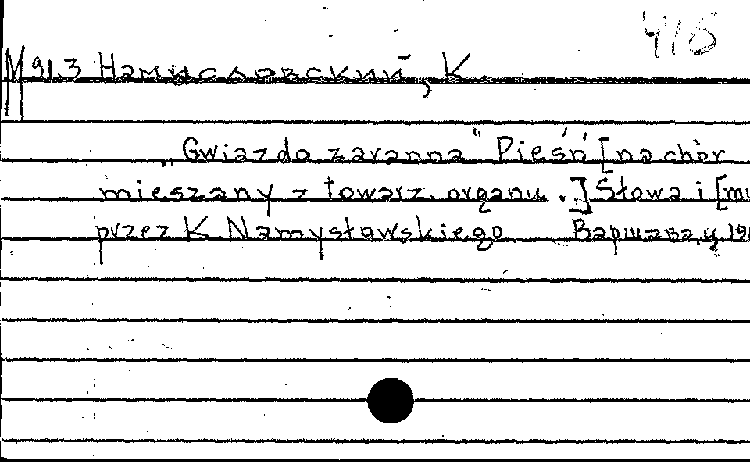 416
М 913 Намысловский, К.
„Gwiazdo zaranna" Pieśń [na chór
mieszany z towarz. organu..] Słowa i [mu
przez K Namysławskiego Варшава, ц. 191